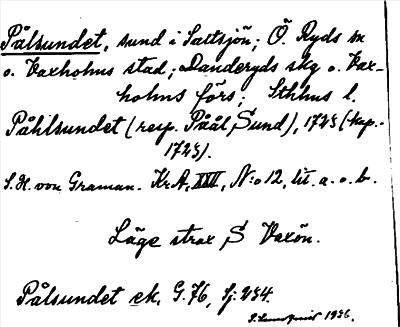 Pålsundet, sund i Saltsjön; Ö. Ryds sn
o. Vaxholms stad; Danderyds skg o. Vax-
holms förs; Sthlms l.
Påhlsundet (resp. Påål Sund), 1725 (kap.-
1725).
S. H. von Graman. Kr.A, XXII, N:o 12, lit. a. o. b.
Läge strax S Vaxön.
Pålsundet ek. G. 76, Sj: 254.
1936.